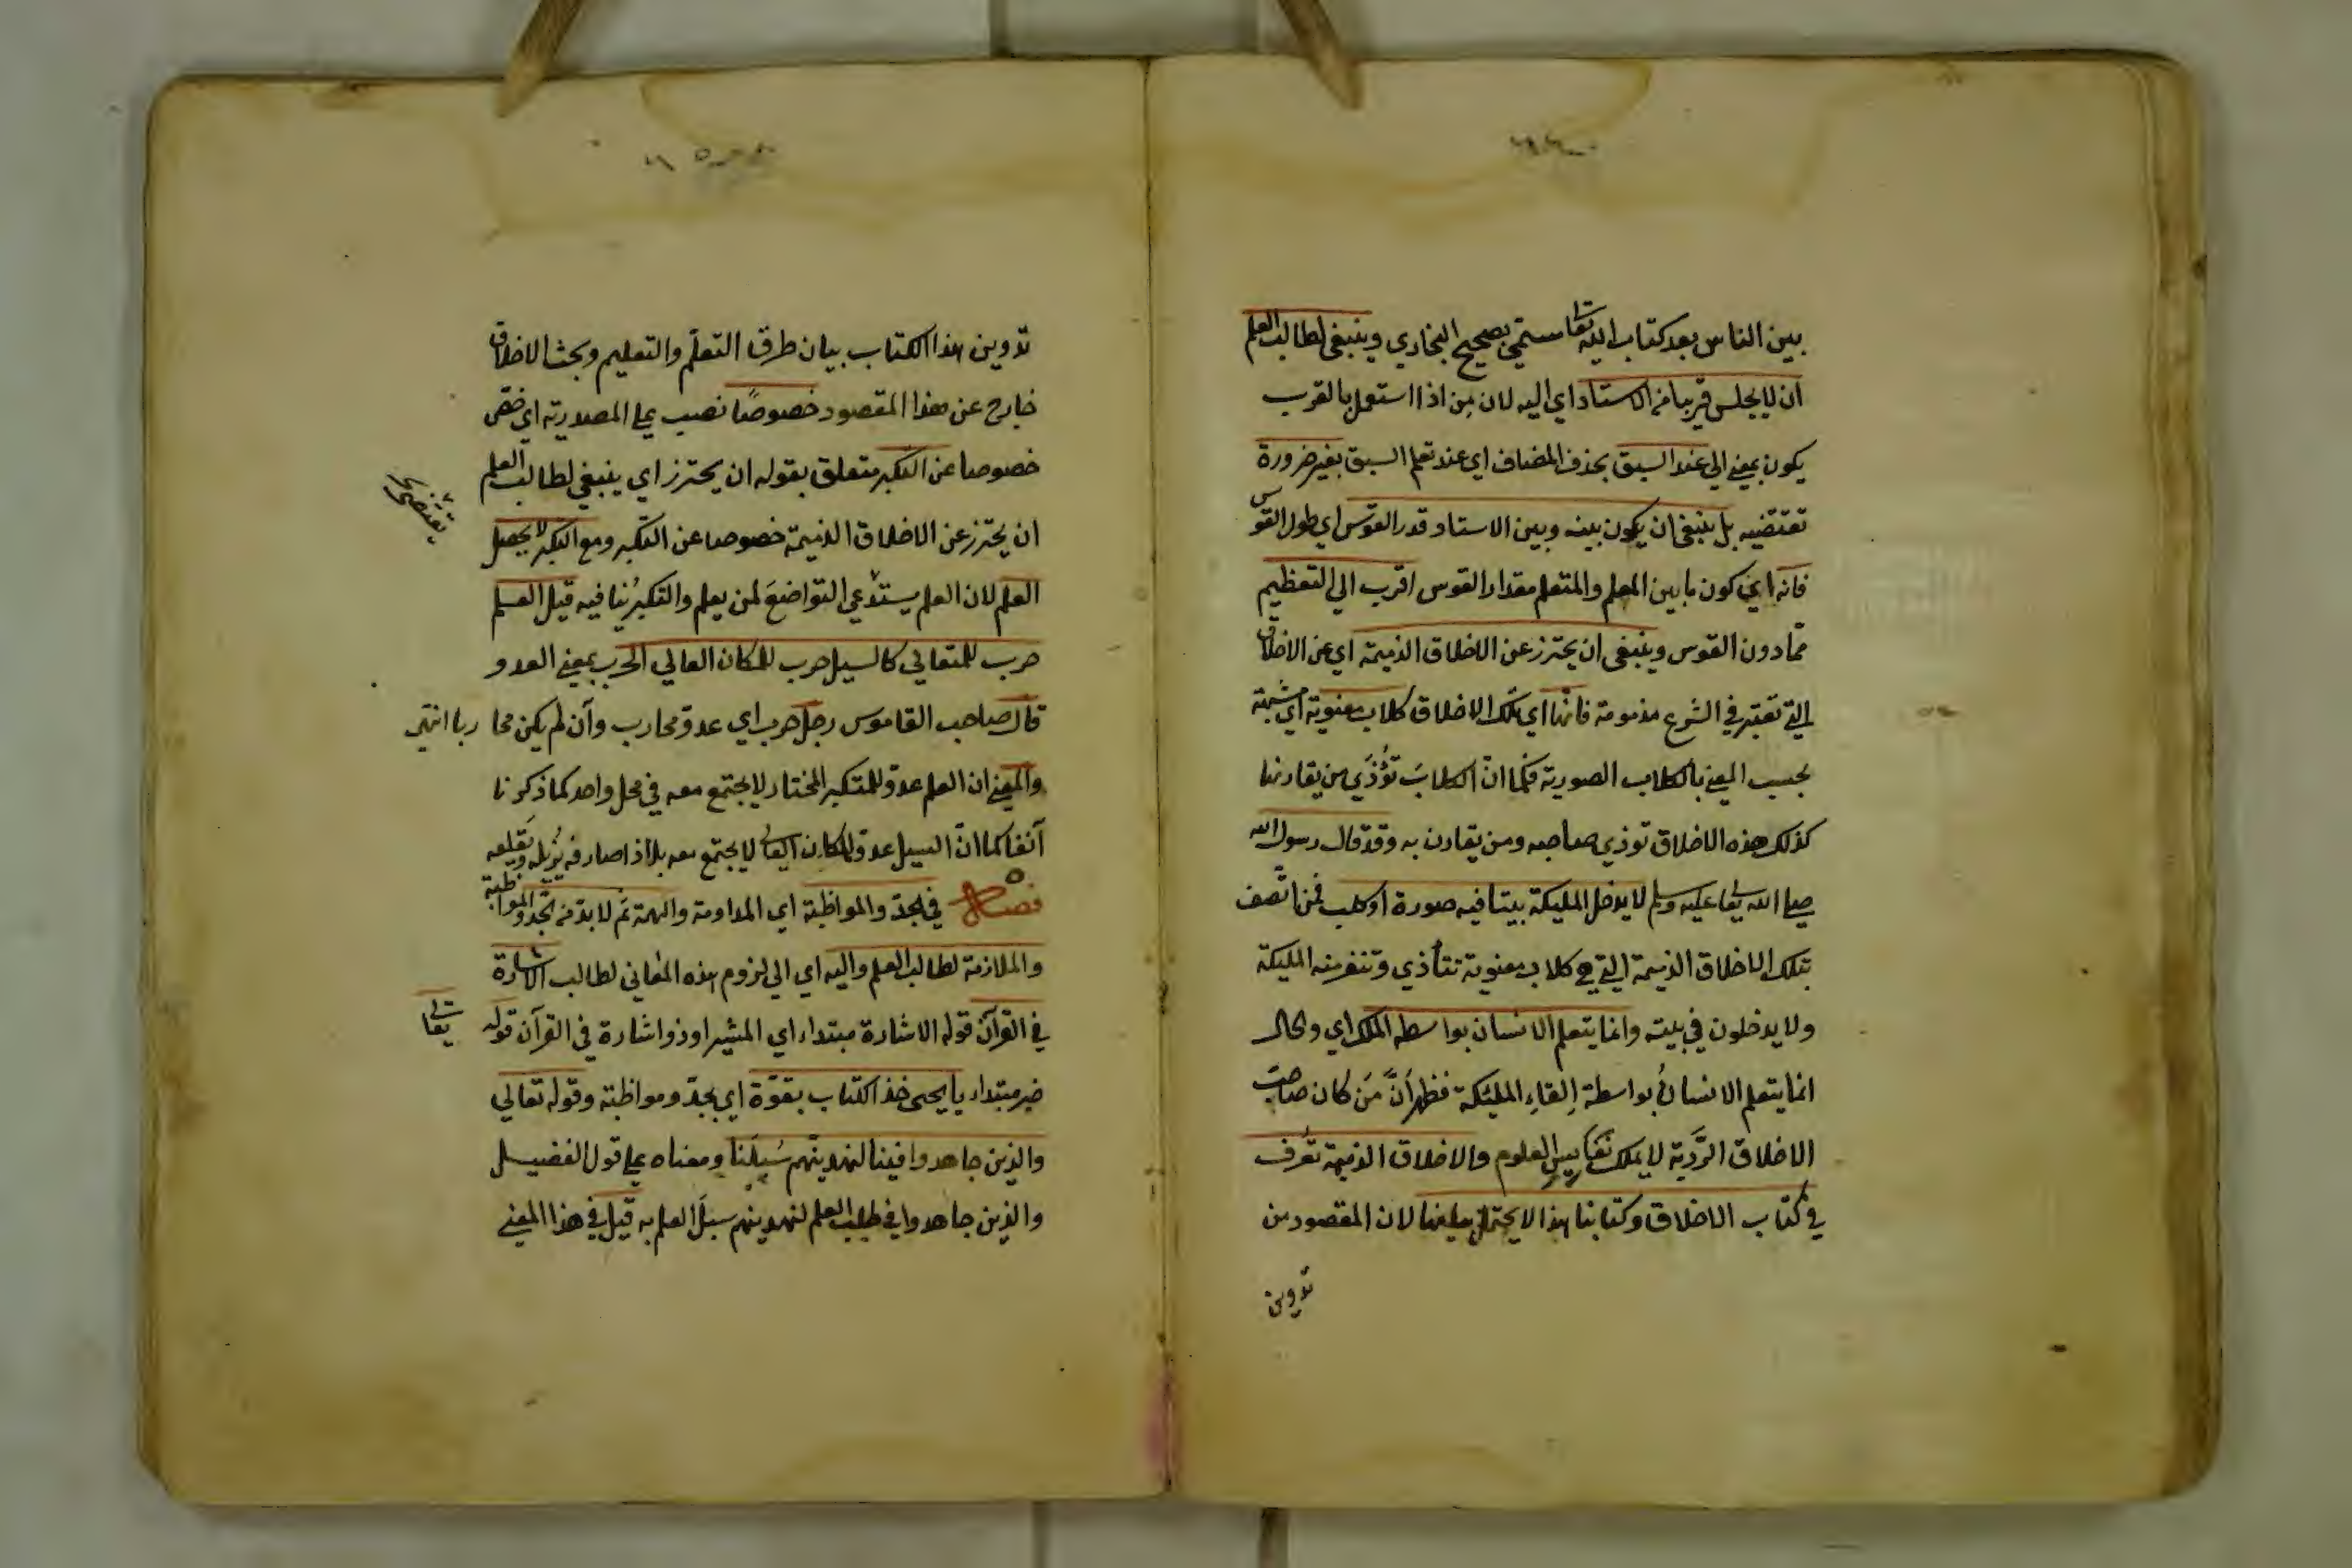 بين الناس بعد كتاب الله تعا سمّي بصحيح البخاري وينبغي لطالب العلم
ان لا يجلس قريبا من الاستاد اي اليه لان مِن اذا استعمل بالقرب
يكون بمعني الي عند السبق بحذف المضاف اي عند تعلم السبق بغير ضرورة
تقتضيه بل ينبغي ان يكون بينه وبين الاستاد قدر القوس اي طول القوس
فانه اي كون ما بين المعلم والمتعلم مقدار القوس اقرب الي التعظيم
ممّا دون القوس وينبغي ان يحترز عن الاخلاق الذميمة اي عن الاخلاق
التي تعتبر في الشرع مذمومة فانها اي تلك الاخلاق كلاب معنوية اي مشبهة
بحسب المعني بالكلاب الصورية فكما انّ الكلابَ تُؤْذَي من يقارنها
كذلك هذه الاخلاق توذي صاحبه ومن يقارن به وقد قال رسول الله
صلي الله تعا عليه وسلم لا يدخل المليكة بيتا فيه صورة او كلب فمن اتّصف
بتلك الاخلاق الذميمة التي هي كلاب معنوية تتأذي وتنفر منه المليكة
ولا يدخلون في بيته وانما يتعلم الانسان بواسطة الملك اي والحال
انما يتعلم الانسانُ بواسطة اِلقاءِ المليكة فظهر اَنَّ مَن كان صاحب
الاخلاق الرَّدِية لا يملك نفايس العلوم والاخلاق الذميمة تعرف
في كتاب الاخلاق وكتابنا هذا لا يحتمل بيانها لان المقصود من
تدوين
تدوين هذا الكتاب بيان طرق التعلّم والتعليم وبحث الاخلاق
خارج عن هذا المقصود خصوصًا نصب علي المصدرية اي خصّ
خصوصا عن التكبر متعلق بقوله ان يحترز اي ينبغي لطالب العلم
ان يحترز عن الاخلاق الذميمة خصوصا عن التكبر ومع التكبر لا يحصل
العلم لان العلم يستدعي التواضعَ لمن يعلم والتكبرُ ينافيه قيل العلم
حرب للمتعالي كالسيل حرب للمكان العالي الحرب بمعني العدو
قال صاحب القاموس رجل حرب اي عدوّ محارب وان لم يكن محاربا انتهي
والمعني ان العلم عدوّ للمتكبر المختار لا يجتمع معه في محل واحد كما ذكرنا
آنفا كما انّ السيل عدوّ للمكان العالي لا يجتمع معه بل اذا صادفه يُزيله ويَقلعه
فصل في الجدّ والمواظبة اي المداومة والهمة ثم لا بدّ من الجدّ والمواظبة
والملازمة لطالب العلم واليه اي الي لزوم هذه المعاني لطالب الاشارة
في القرآن قوله الاشارة مبتداء اي المشير او ذو اشارة في القرآن قوله
تعالي
خبر مبتداء يا يحيي خذ الكتاب بقوّة اي بجدّ ومواظبة وقوله تعالي
والذين جاهدوا فينا لنهدينّهم سُبلَنا ومعناه علي قول الفضيل
والذين جاهدوا في طلب العلم لنهدينهم سبلَ العلم به قيل في هذا المعني